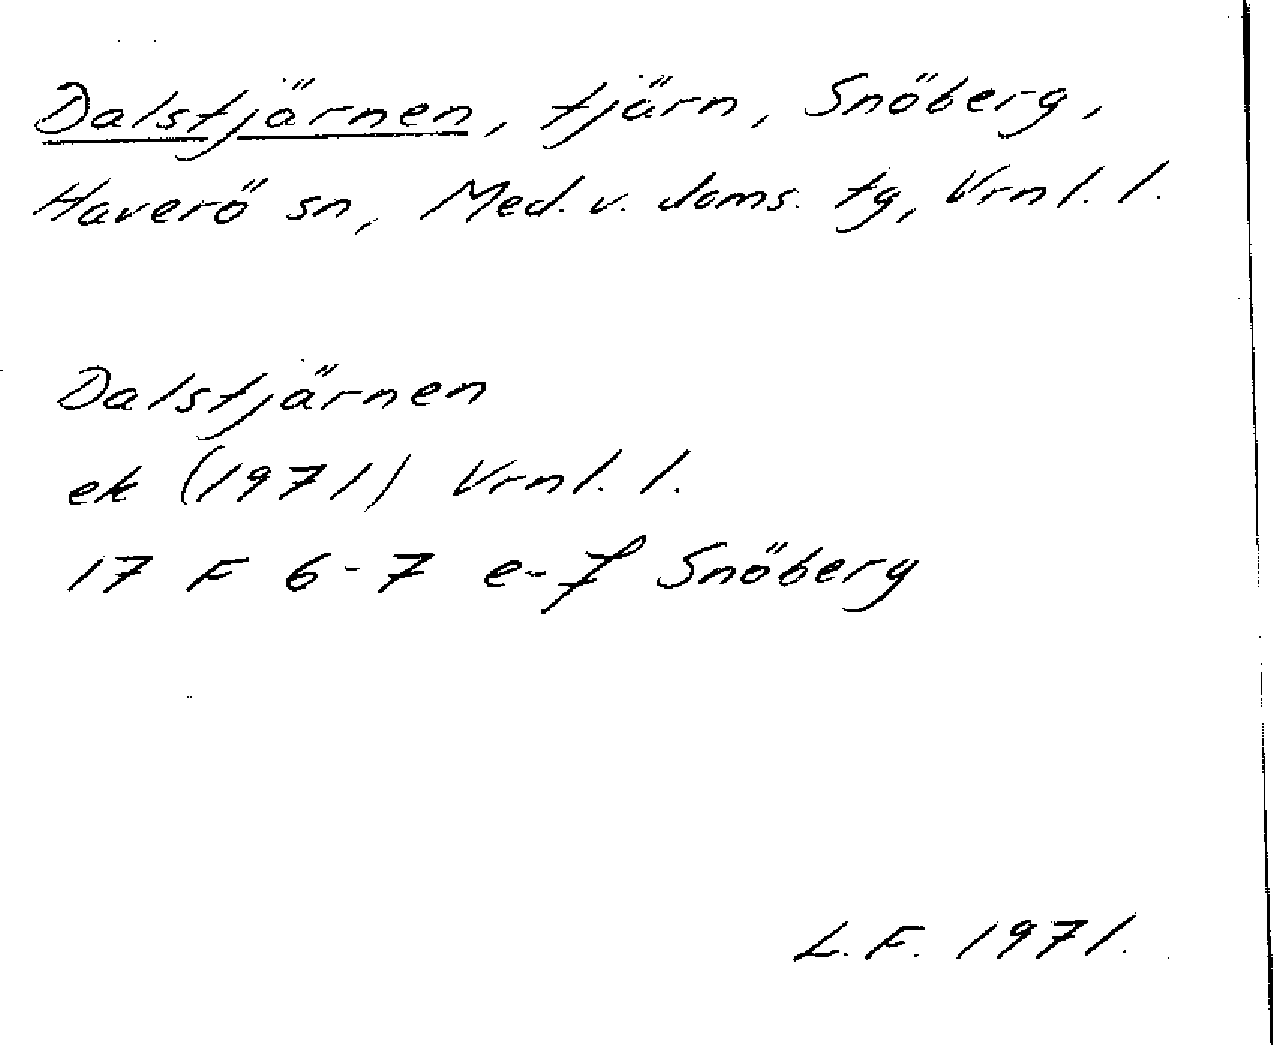 Dalstjärnen, tjärn, Snöberg,
Haverö sn, Med. v. doms. tg, Vrnl. l.
Dalstjärnen
ek (1971) Vrnl. l.
17 F 6-7 e-f Snöberg
L.F. 1971.